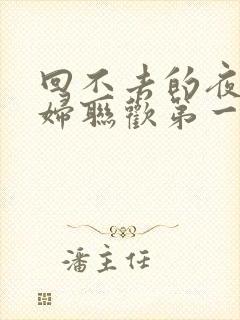 回不去的夜
婦聯歡第一
潘主任